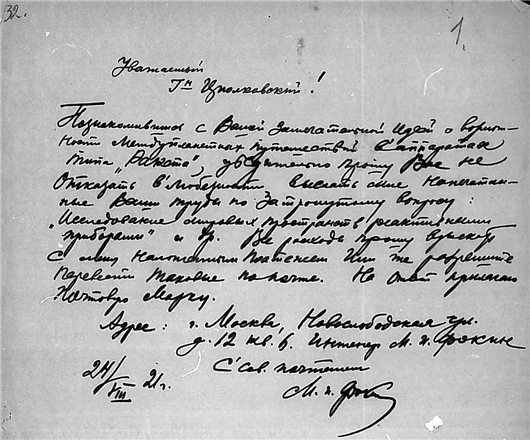 32.
1.
Уважаемый
Г-н Циолковский!
Познакомившись с Вашей замечательной идеей о
ности междупланетных путешествий с аппаратом
типа „Ракета“, убедительно прошу Вас не
отказать в любезности выслать мне напечатан-
ные Ваши труды по затронутому вопросу:
„Исследование мировых пространств реактивными
приборами“ и др. Все расходы прошу
с меня наложенным платежом или же разрешите
перевести таковые по почте. На ответ прилагаю
почтовую марку.
Адрес: г. Москва, Новослободская ул.
д. 12 кв. 6. Инженер М. Н. Фокин
С сов. почтением
24/VIII 21 г.
М. Н. Фокин